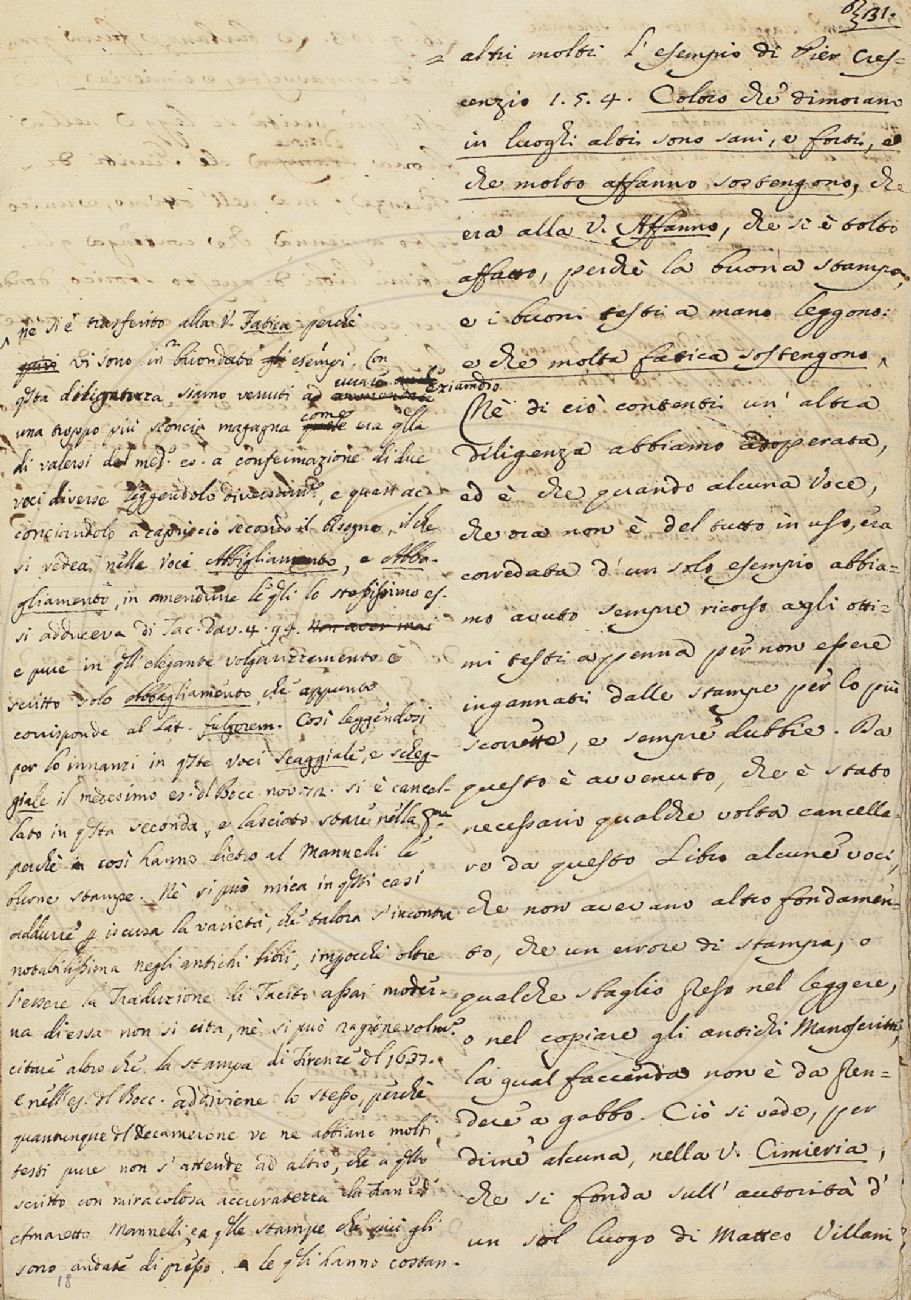 B1.
= altri molti l'esempio di Pier Cres-
cenzio 1. 5. 4. Coloro che dimorano
in luoghi alti sono sani, e forti, e
che molto affanno sostengono, che
era alla V. Affanno, che si è tolto
affatto, perchè la buona stampa,
e i buoni testi a mano leggono:
e che molta fatica sostengono ^
Nè di ciò contenti un' altra
diligenza abbiamo adoperata,
ed è che quando alcuna Voce,
che ora non è del tutto in uso, era
corredata d'un solo esempio abbia-
mo avuto sempre ricorso agli otti-
mi testi a penna per non essere
ingannati dalle stampe per lo più
scorrette, e sempre dubbie. Da
questo è avvenuto, che è stato
necessario qualche volta cancella-
re da questo Libro alcune voci,
che non avevano altro fondamen-
to, che un errore di stampa, o
qualche sbaglio preso nel leggere,
o nel copiare gli antichi Manoscritti,
la qual faccenda non è da pren-
dere a gabbo. Ciò si vede, per
dirne alcuna, nella V. Cimieria,
che si fonda sull' autorità d'
un sol luogo di Matteo Villani,
^ nè si è trasferito alla V. Fatica perchè
quivi vi sono in abbondato gli esempi. Con
qsta diligenza siamo venuti ad eziandio
una troppo più sconcia magagna come era qlla
di valersi del med.o es. a confermazione di due
voci diverse leggendolo diversam.e, e quasi ac-
conciandolo a capriccio secondo il bisogno, il che
si vedea nelle voci Abbigliamento, e Abba-
gliamento, in amendune le qli lo stessissimo es.
si adduceva di Tac. Dav. 4. 94. Non aver mai
e pure in qll' elegante volgarizzamento è
scritto solo abbagliamento, che appunto
corrisponde al Lat. fulgorem. Così leggendosi
per lo innanzi in qste voci Scaggiale, e scheg-
giale il medesimo es. dl Bocc. nov. 72. si è cancel-
lato in qsta seconda, e lasciato stare nella pma
perchè così hanno dietro al Mannelli le
buone stampe. Nè si può mica in qsti casi
addurre p iscusa la varietà, che talora s'incontra
notabilissima negli antichi libri, imperchè oltre
l'essere la Traduzione di Tacito assai moder-
na di essa non si cita, nè si può ragionevolm.e
citare altro che la stampa di Firenze dl 1637.
E nell'es. dl Bocc. addiviene lo stesso, perchè
quantunque dl Decamerone ve ne abbiano molti
testi pure non s'attende ad altro, che a qllo
scritto con miracolosa accuratezza da
Amaretto Mannelli, ea qlle stampe che più gli
sono andate di presso, le qli hanno costan-
18